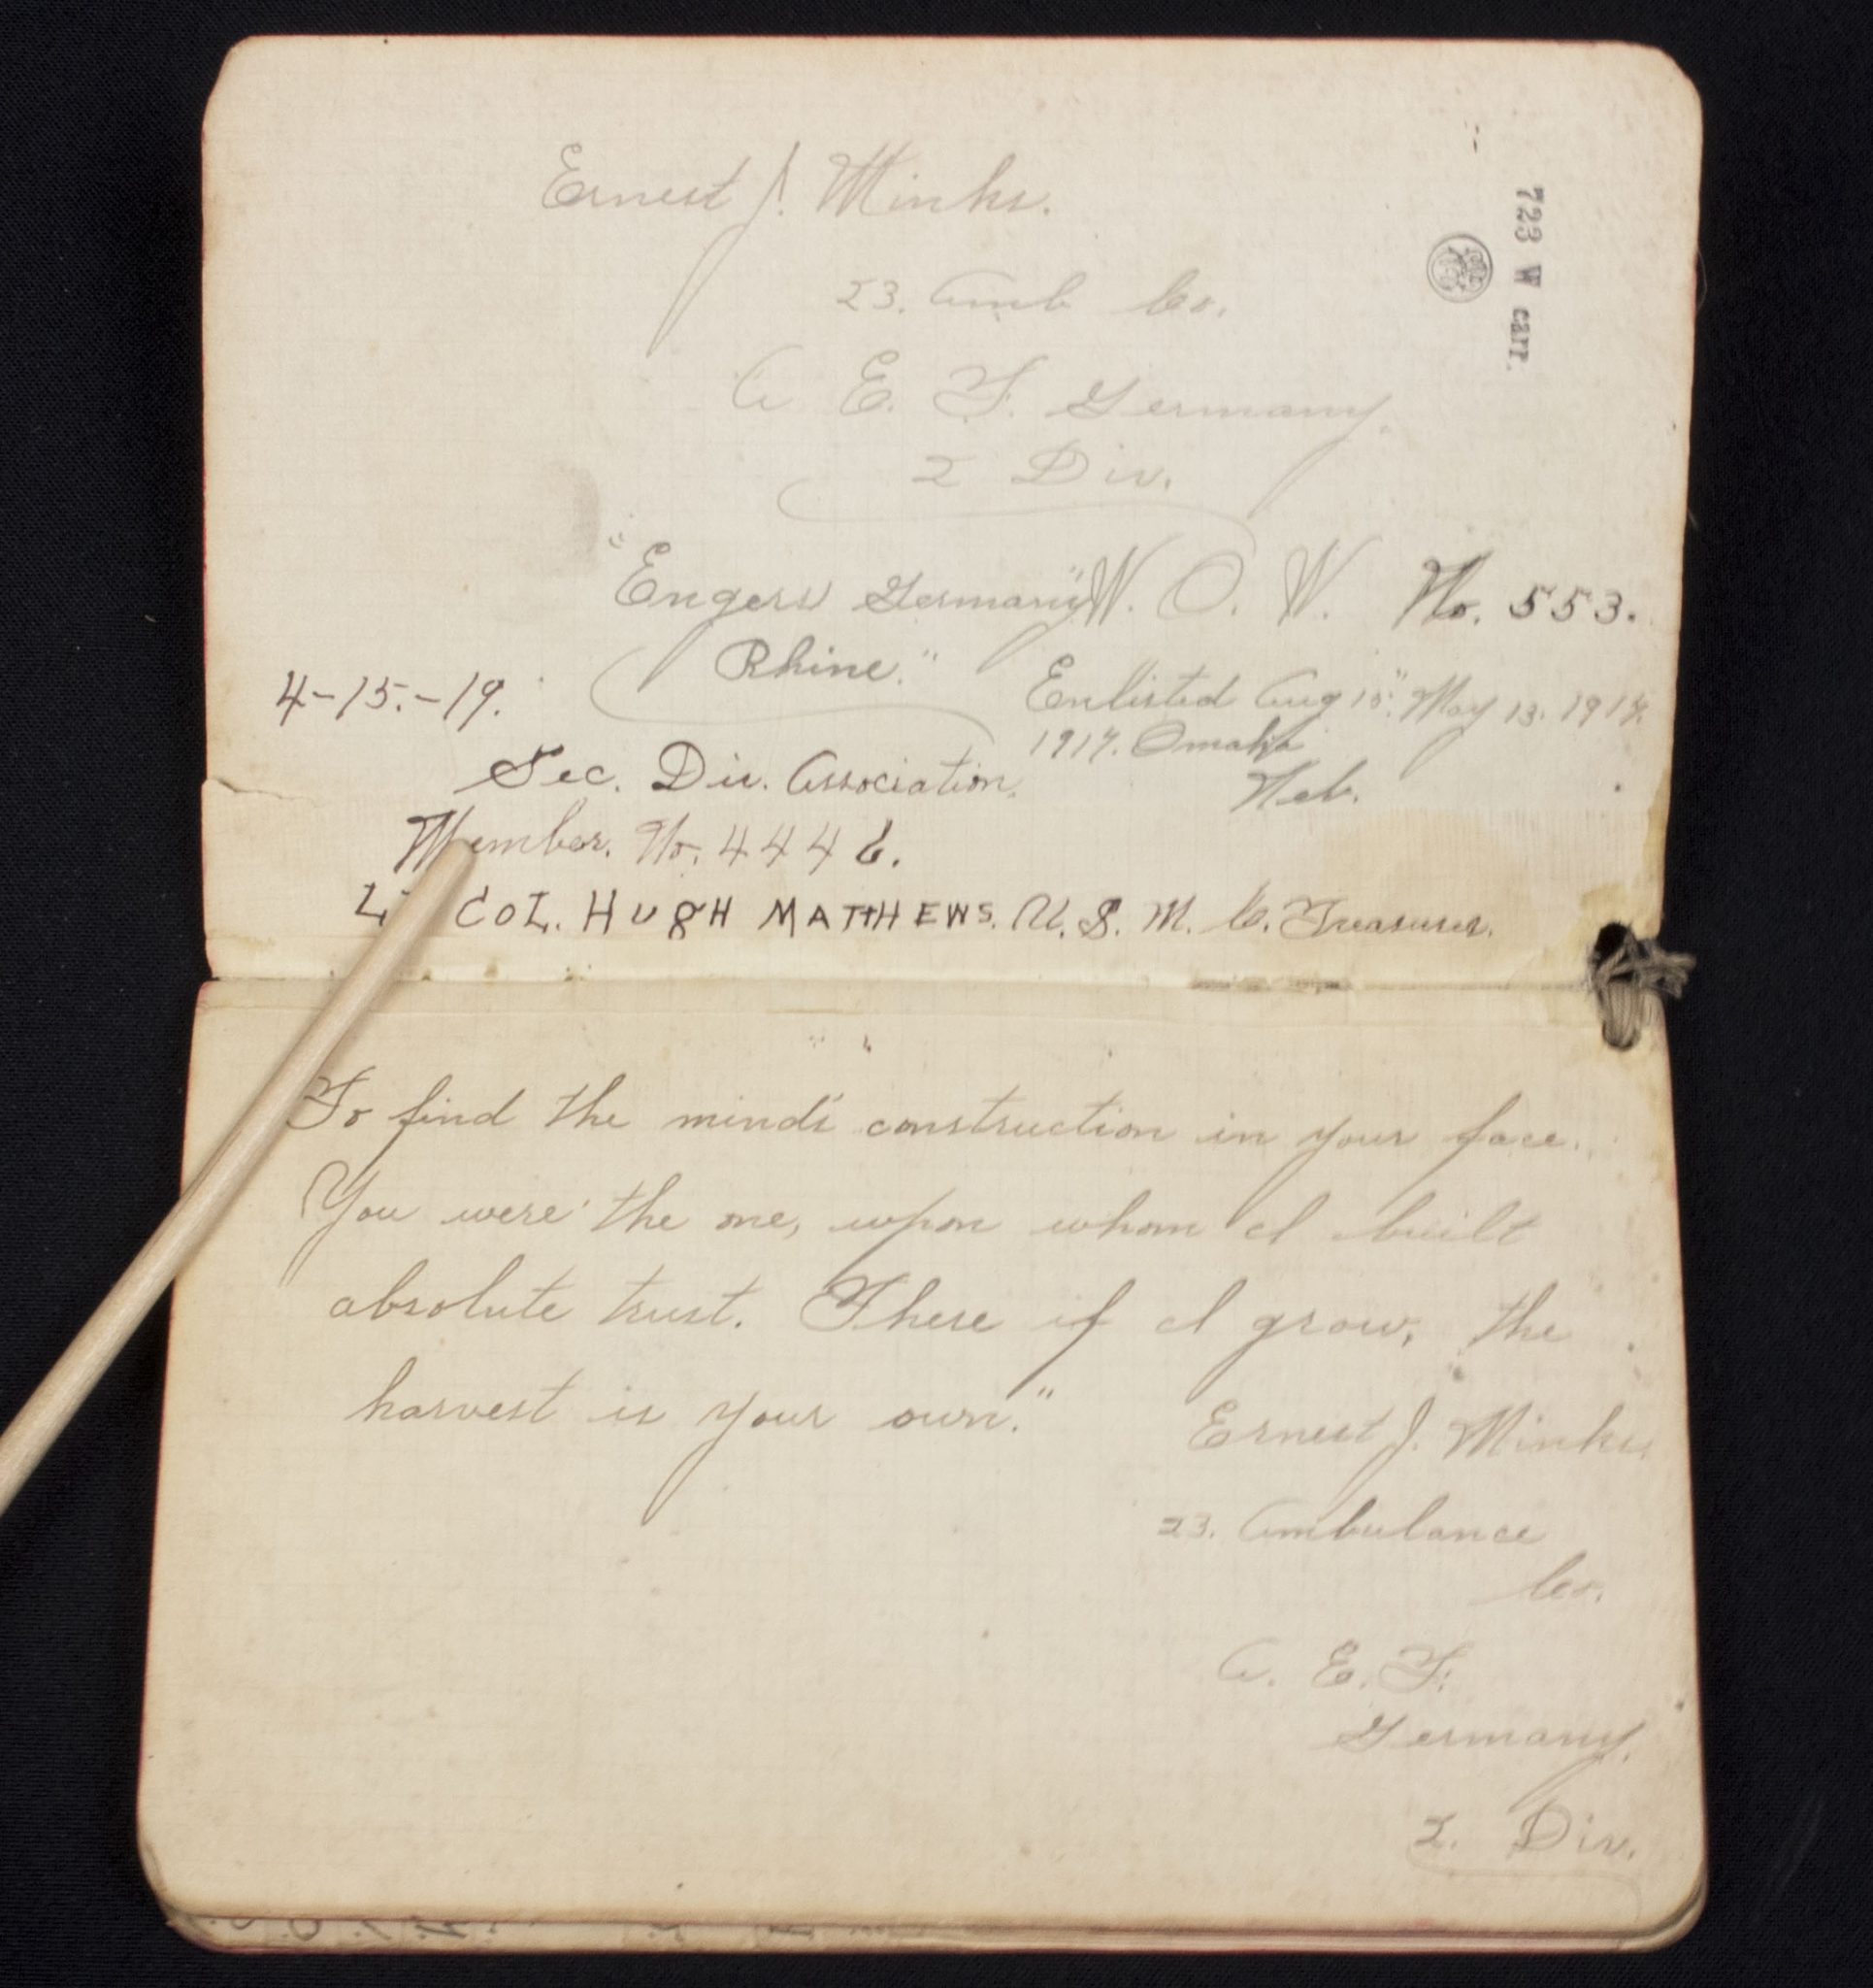 Ernest J. Minks.
723 W carr.
23. Amb Co.
A E. F. Germany.
2 Div.
"Engers Germany" W. O. W. No. 553.
Rhine."
4-15.-19.
Enlisted Aug 15" May 13. 1917.
1917. Omaha
Neb.
Sec. Div. Association.
Member. No. 4446.
COL. HUGH MATTHEWS. U. S. M. C. Treasurer.
To find the mind's construction in your face.
You were the one, upon whom I built
absolute trust. There if I grow, the
harvest is your own."
Ernest J. Minks
23. Ambulance
Co.
A. E. F.
Germany.
2. Div.